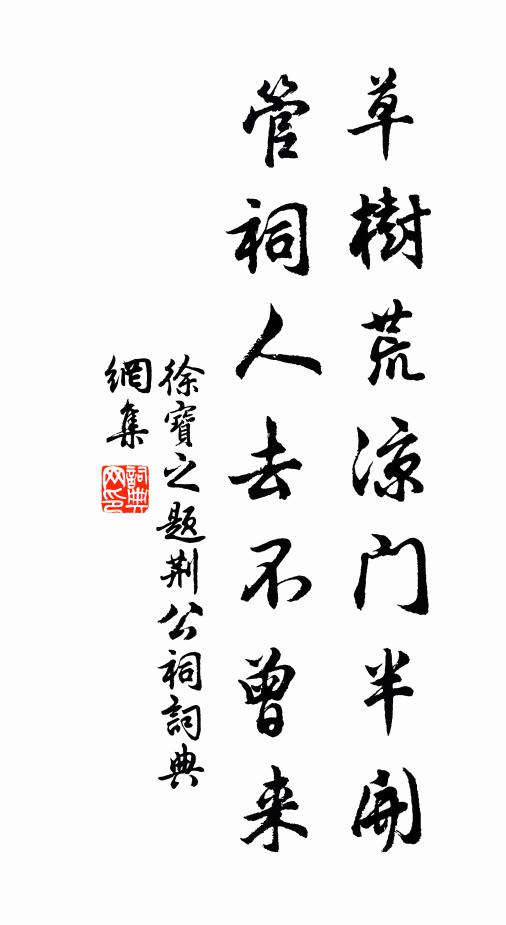 草樹荒涼门半開
管祠人去不曾来
徐寶之题荆公祠詞典
網集
詞典
网印